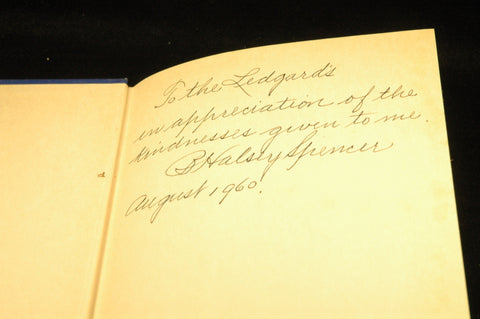 To the Ledgard's
in appreciation of the
kindnesses given to me.
B Halsey Spencer
August 1960.